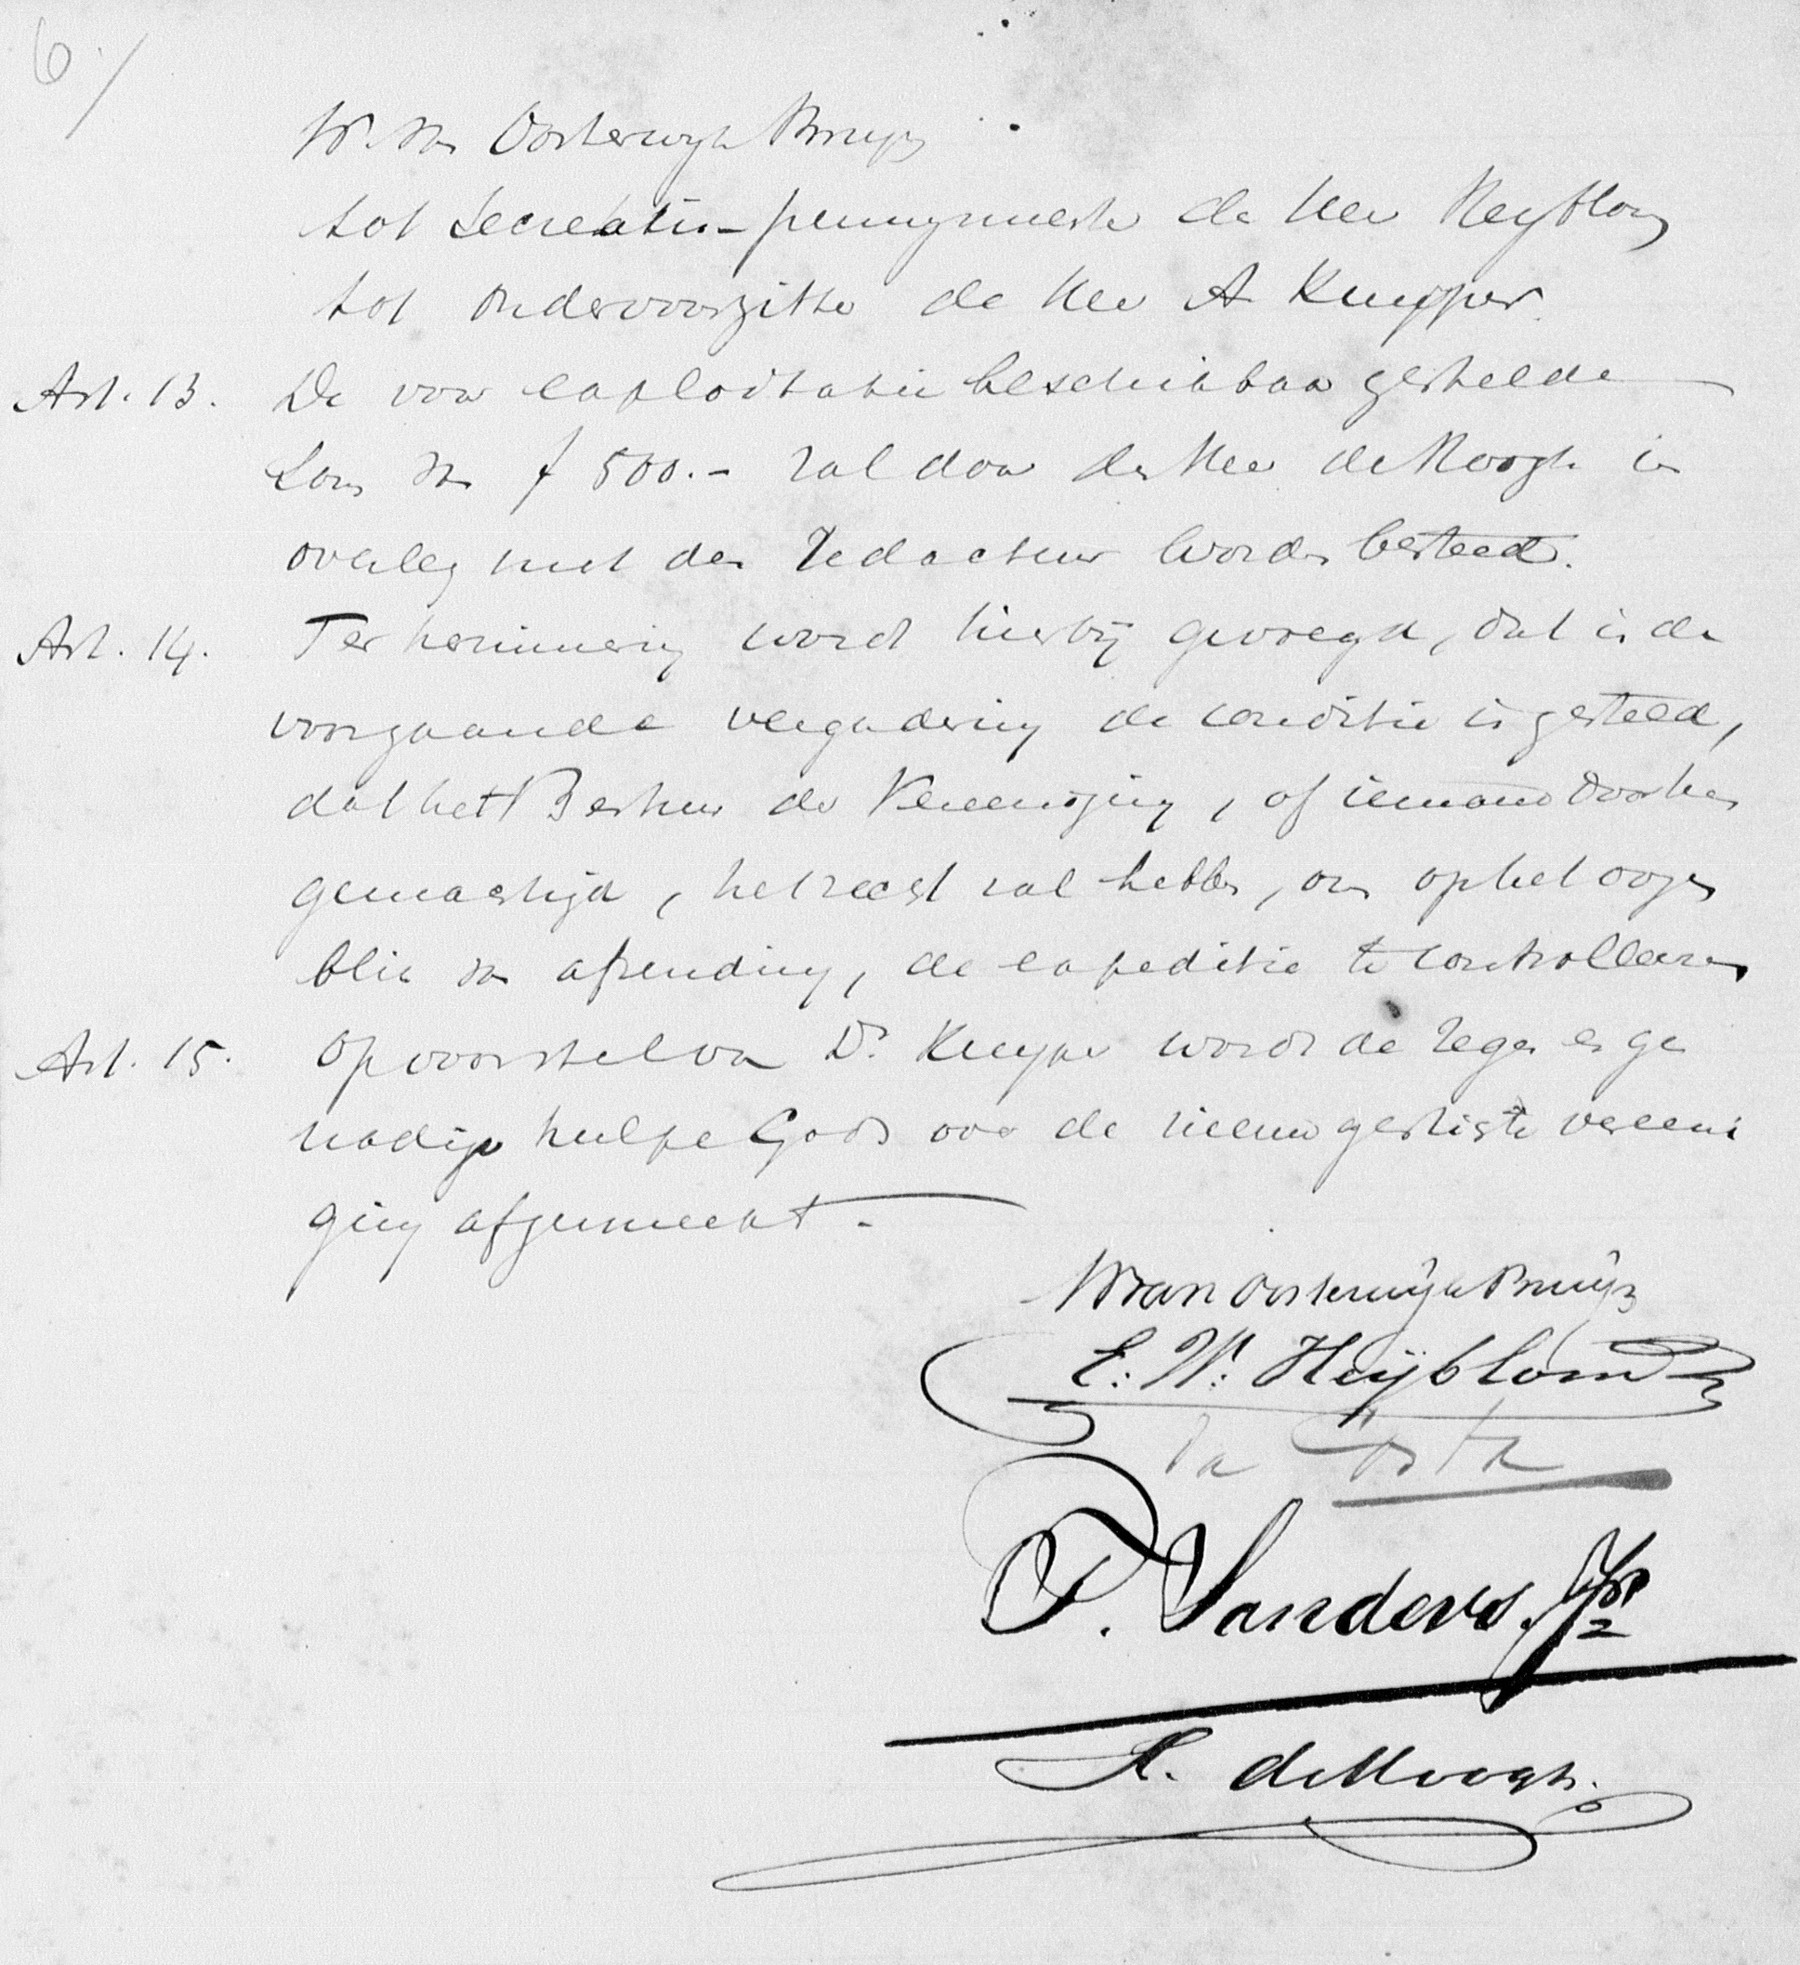 6/
W. van Oosterwyk Bruyn
tot Secretaris-penningmeester de Heer Heyblom
tot Ondervoorzitter de Heer A Kuyper.
Art. 13. De voor exploitatie beschikbaar gestelde
Som van f 500.- zal door den Heer de Hoogh in
overleg met den Redacteur worden besteed.
Art. 14. Ter herinnering word hierbij gevoegd, dat in de
voorgaande vergadering de conditie is gesteld,
dat het Bestuur der Vereeniging, of iemand door hen
gemachtigd, het recht zal hebben, om op het oogen
blik van afzending, de expeditie te controlleeren
Art. 15. Op voorstel van Dr. Kuyper wordt de zegen en ge
nadige hulpe Gods over de nieuw gestichte vereeni
ging afgesmeekt.-
W van Oosterwijk Bruijn
E. W. Heijblom
Da Costa
T. Sanders. Jr
A. de Hoogh.